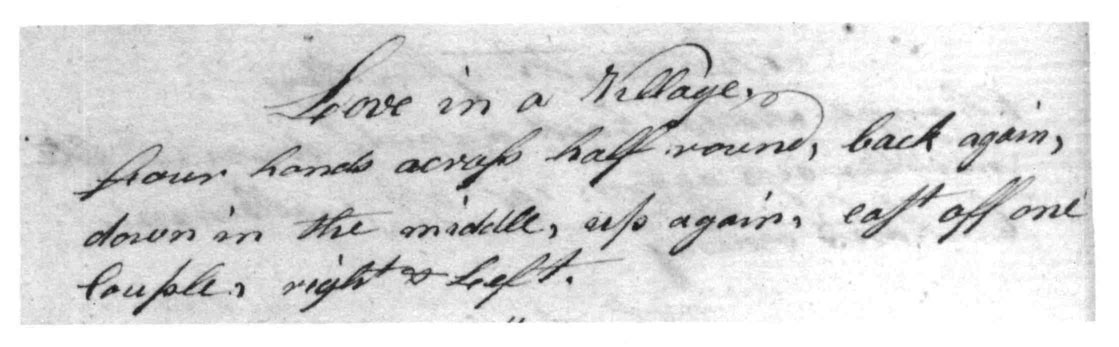 Love in a Village,
four hands acroſs half round, back again,
down in the middle, up again, caſt off one
Couple, right & Left.